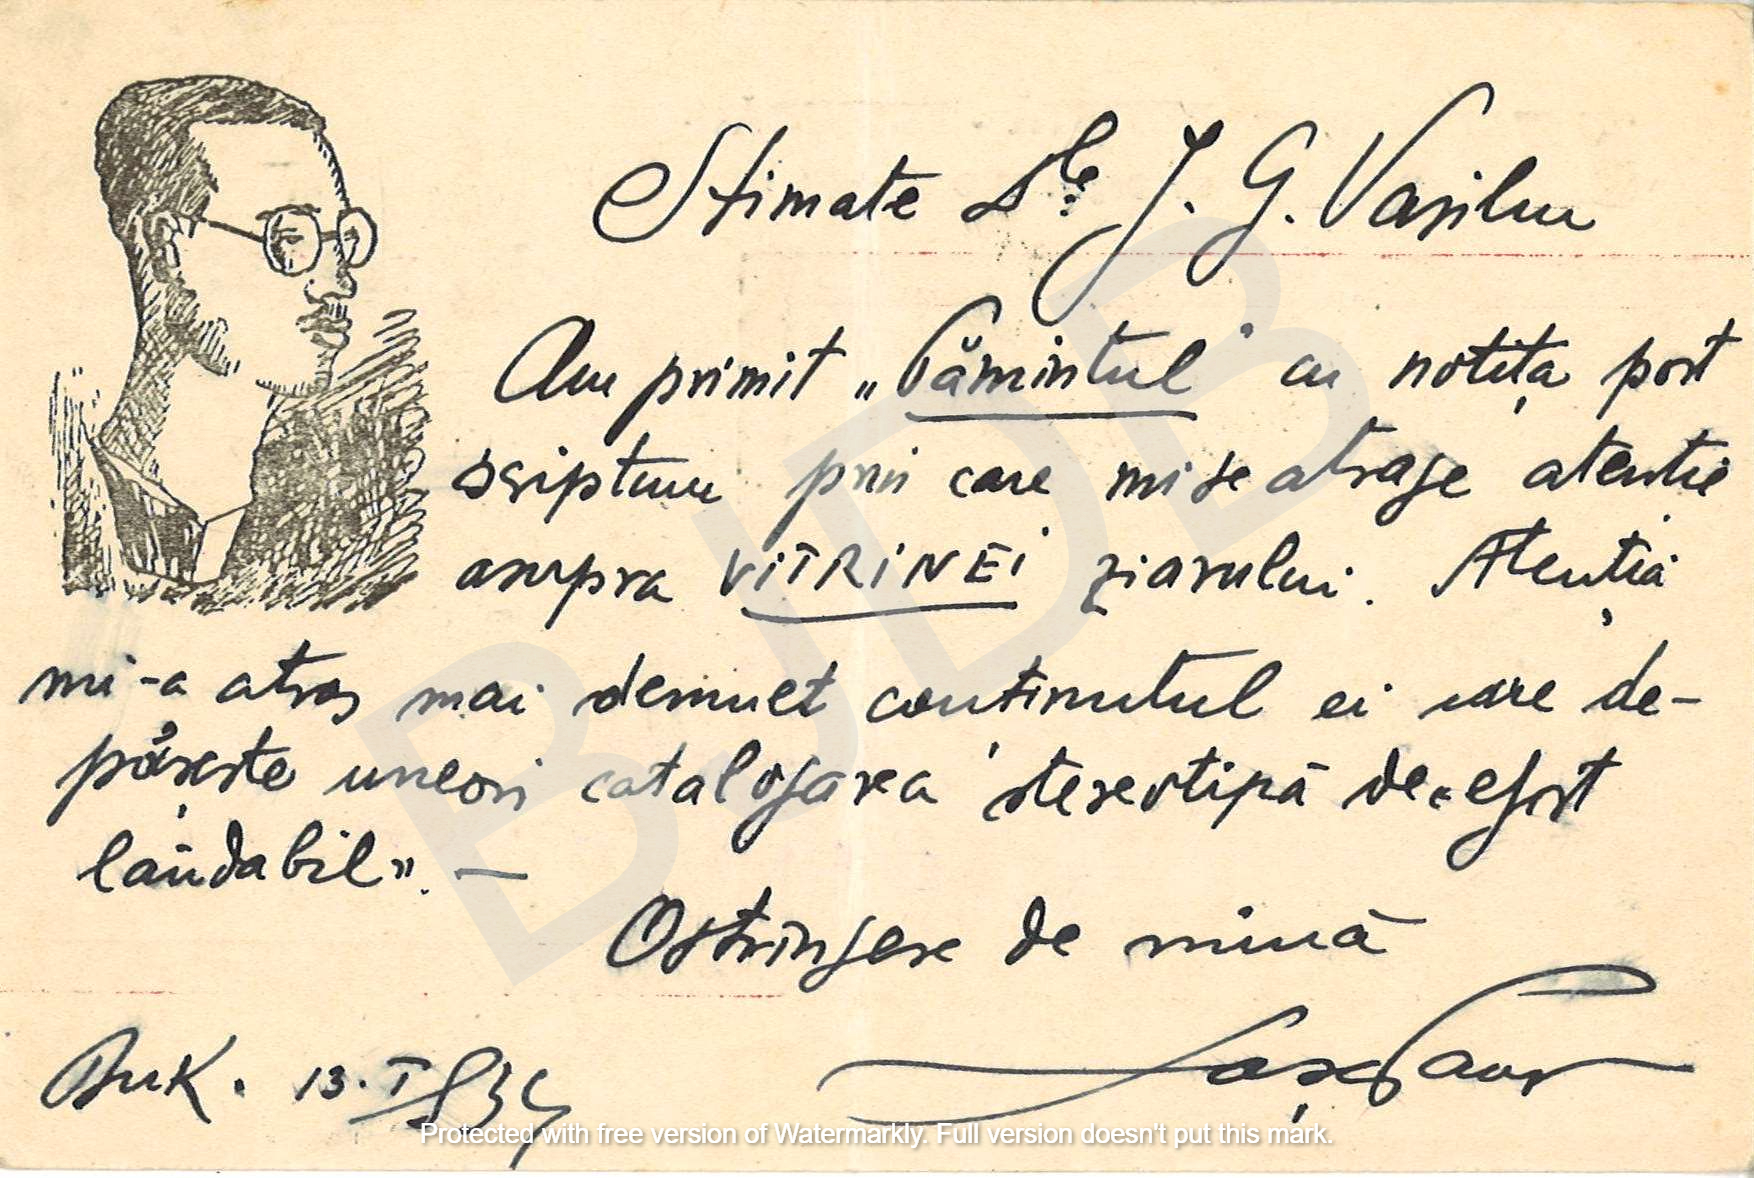 Stimate Dle J. G. Vasiliu
Am primit „Pămîntul” cu notița post
scriptum prin care mi se atrage atentie
asupra ViTRiNEi ziarului. Atenția
mi-a atras mai demult conținutul ei care de-
pășește uneori catalogarea stereotipă de „efort
laudabil”. —
O strîngere de mînă
BuK. 13. I 934
BJDB
Protected with free version of Watermarkly. Full version doesn't put this mark.